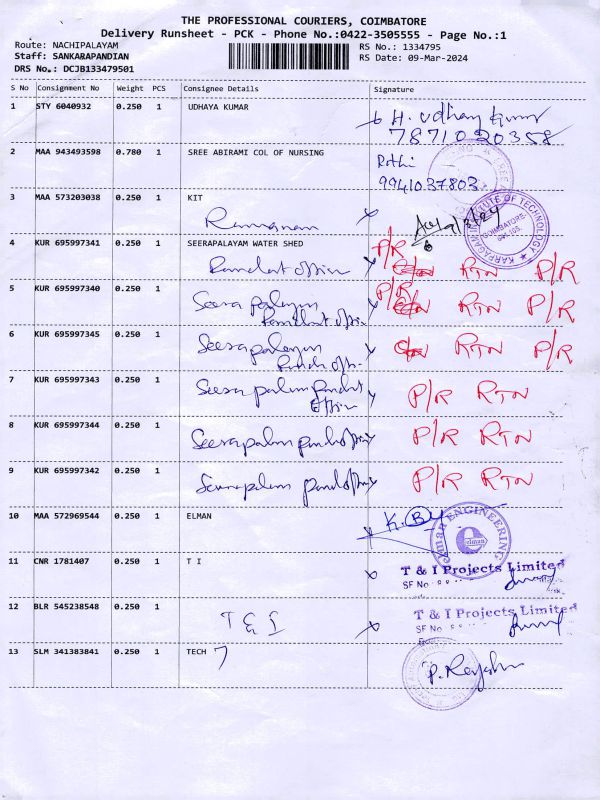 THE PROFESSIONAL COURIERS, COIMBATORE
Delivery Runsheet - PCK - Phone No.:0422-3505555 - Page No.:1
Route: NACHIPALAYAM
RS No.: 1334795
Staff: SANKARAPANDIAN
RS Date: 09-Mar-2024
DRS No.: DCJB133479501
S No Consignment No Weight PCS Consignee Details Signature
1 STY 6040932 0.250 1 UDHAYA KUMAR H. Udhaya Kumar
7871020358
2 MAA 943493598 0.780 1 SREE ABIRAMI COL OF NURSING Rathi
9941037803
3 MAA 573203038 0.250 1 KIT
9/3/24
KARPAGAM INSTITUTE OF TECHNOLOGY
COIMBATORE-
641 105.
4 KUR 695997341 0.250 1 SEERAPALAYAM WATER SHED P/R
RTN P/R
5 KUR 695997340 0.250 1 Seerapalayam P/R RTN P/R
6 KUR 695997345 0.250 1 Seerapalayam RTN P/R
7 KUR 695997343 0.250 1 P/R RTN
8 KUR 695997344 0.250 1 P/R RTN
9 KUR 695997342 0.250 1 P/R RTN
10 MAA 572969544 0.250 1 ELMAN K. By
elman ENGINEERING
elman
11 CNR 1781407 0.250 1 T I T & I Projects Limited
SF No
12 BLR 545238548 0.250 1 T & I T & I Projects Limited
SF No
13 SLM 341383841 0.250 1 TECH 7